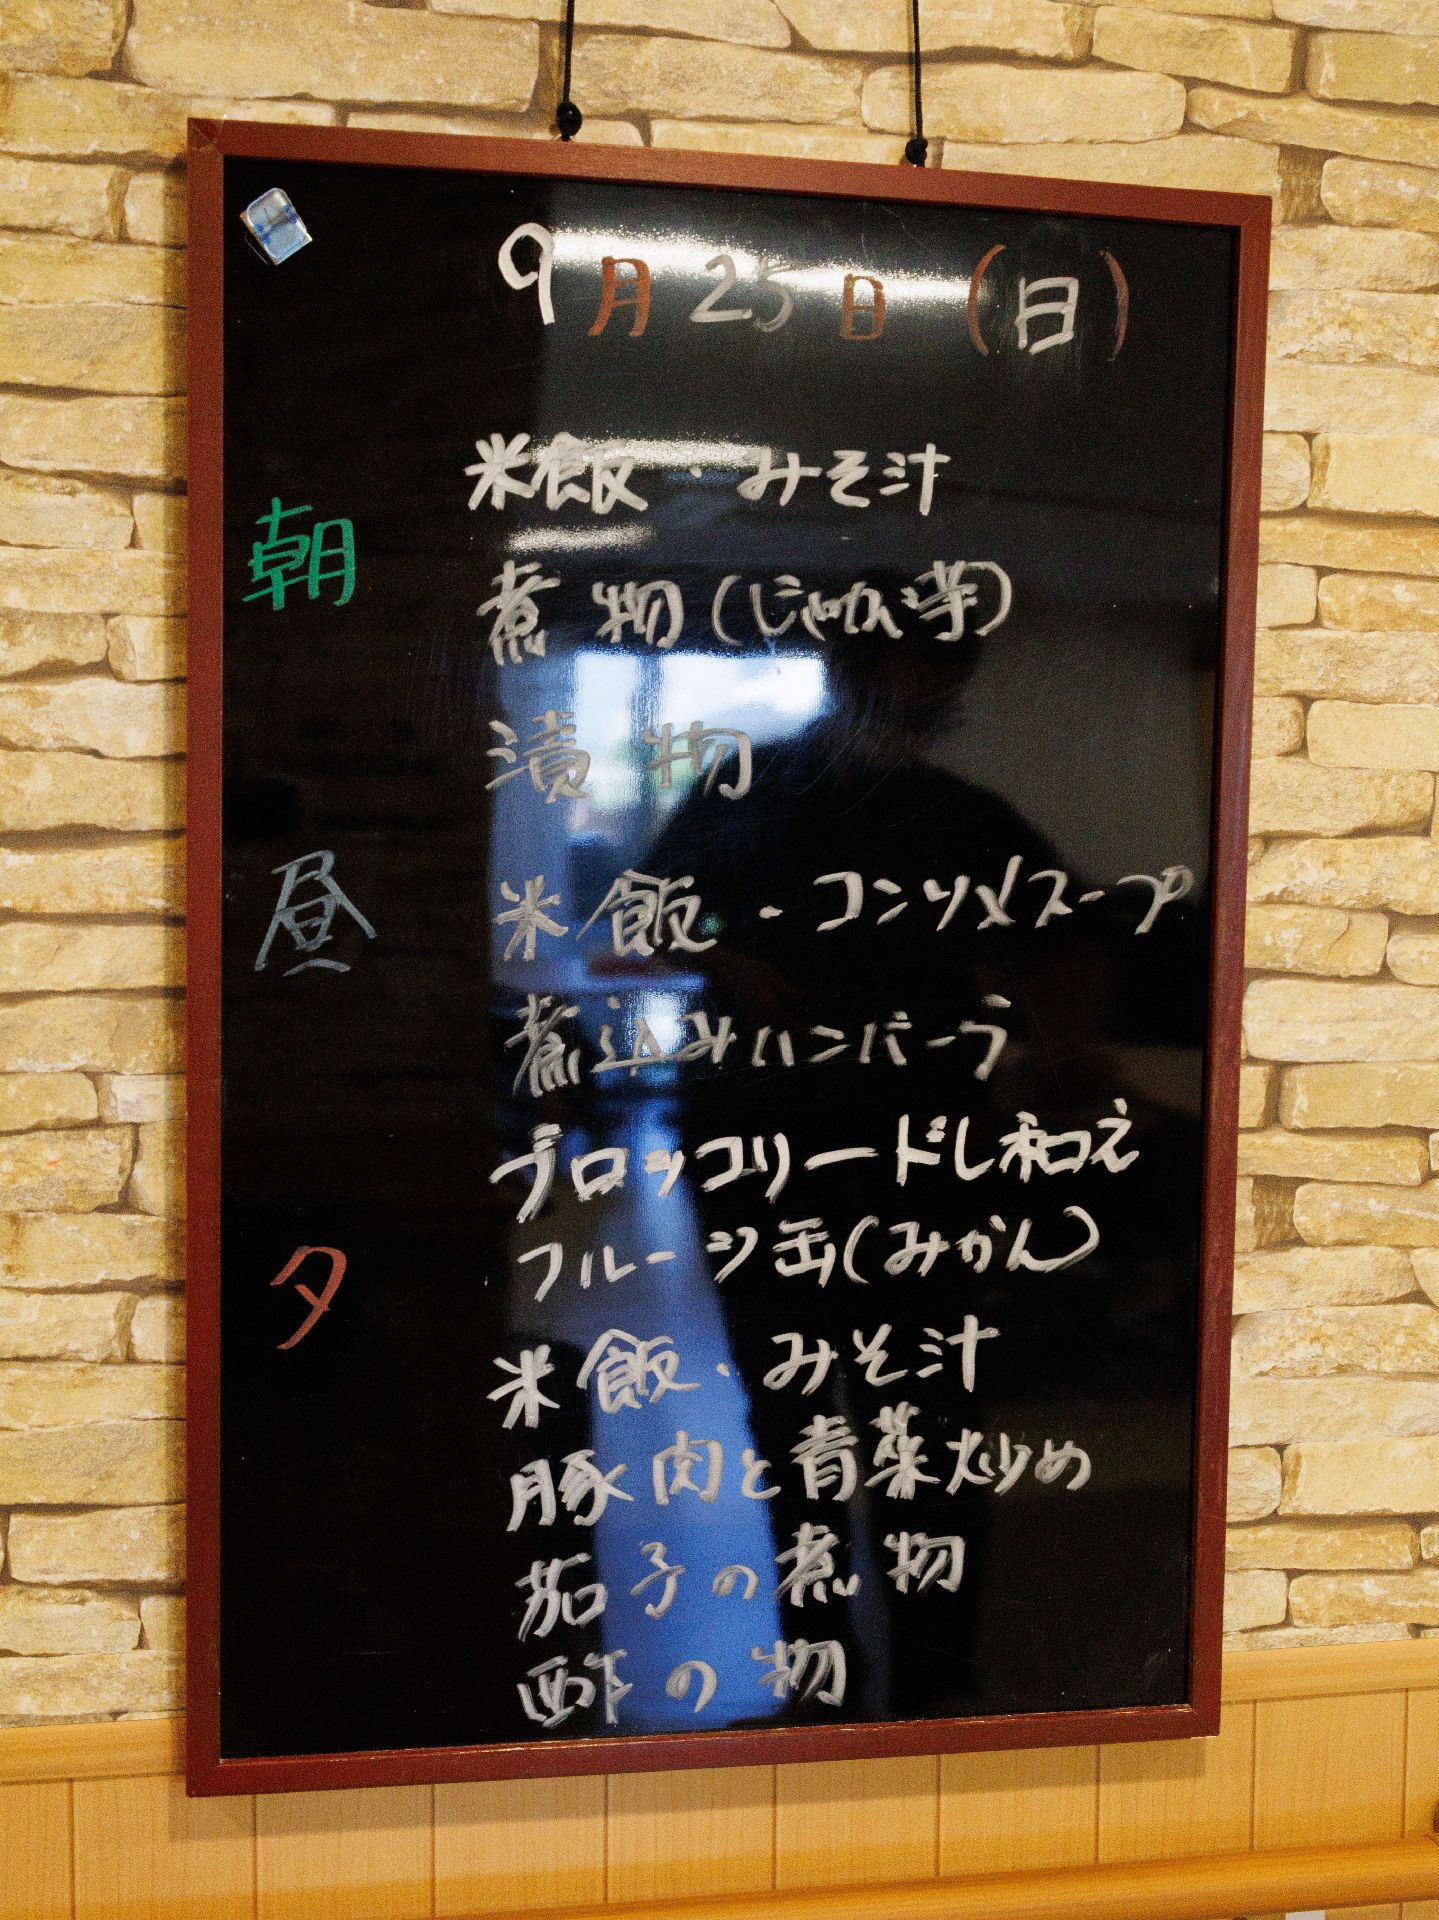 9月25日(日)
朝
米飯・みそ汁
煮物(じゃがい芋)
漬物
昼
米飯・コンソメスープ
煮込みハンバーグ
ブロッコリードレ和え
フルーツ缶(みかん)
夕
米飯・みそ汁
豚肉と青菜炒め
茄子の煮物
酢の物